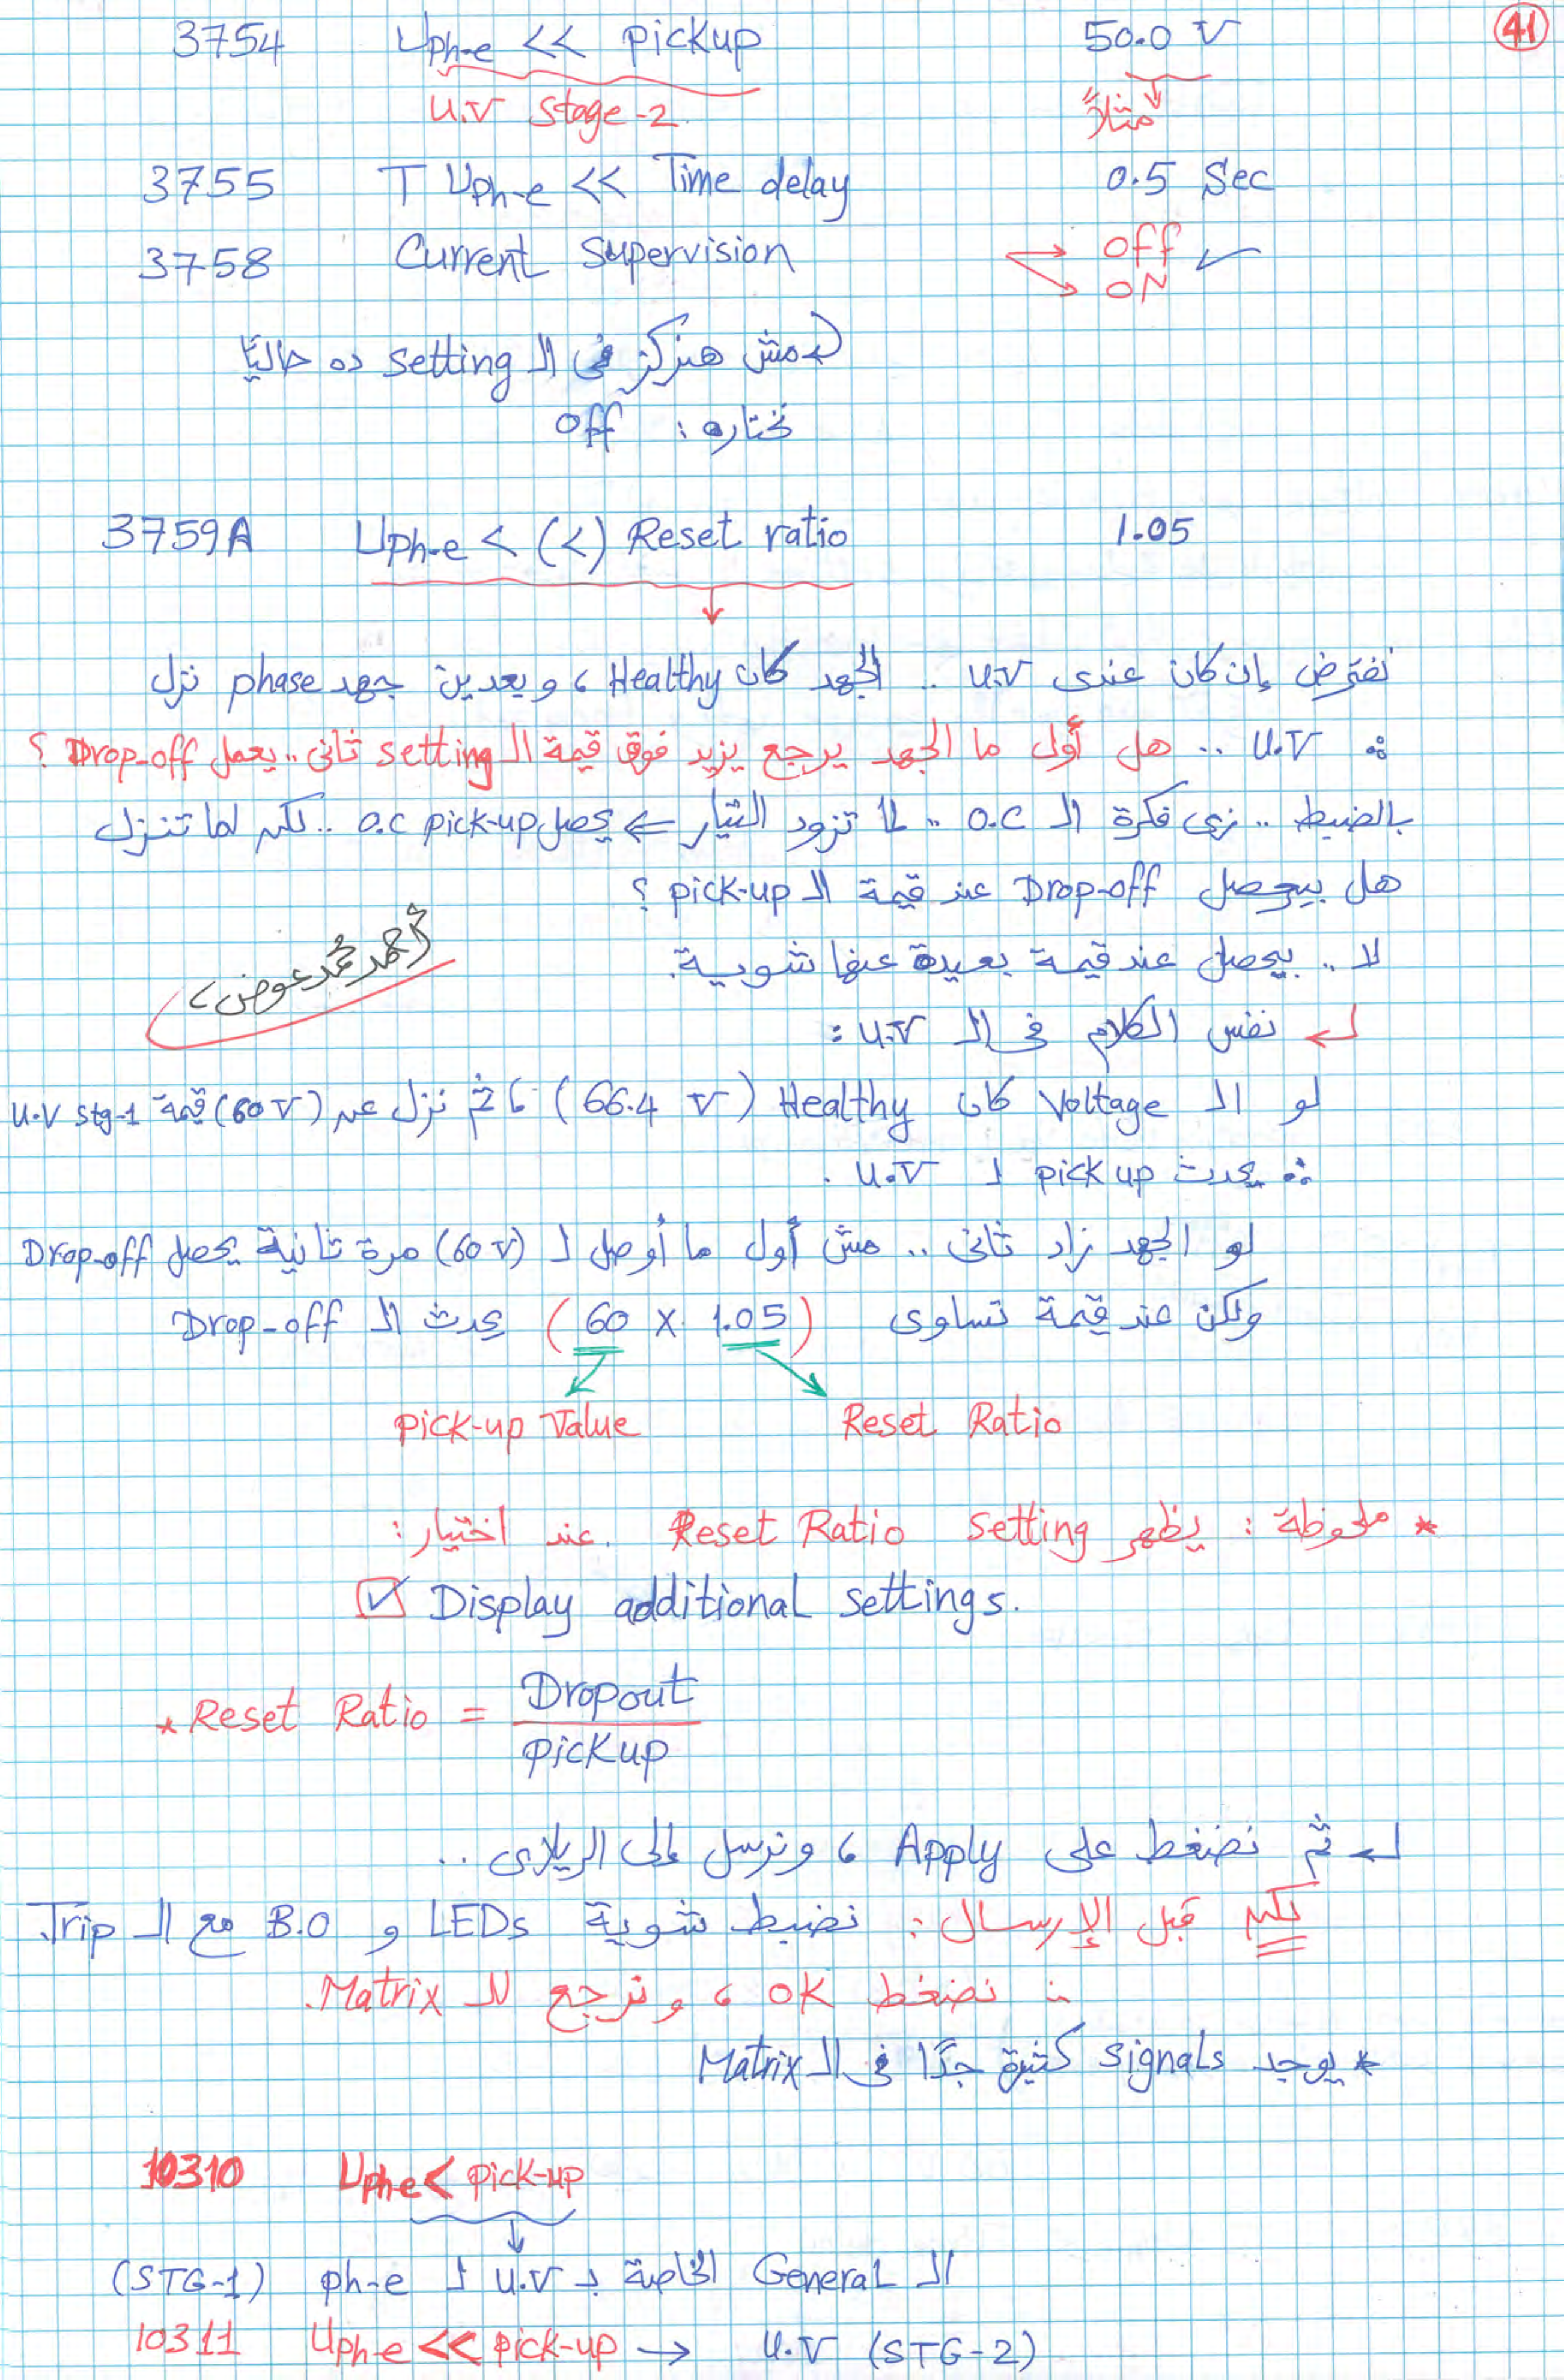 41
3754 Uph-e << pickup 50.0 V
U.V stage-2 مثلاً
3755 T Uph-e << Time delay 0.5 Sec
3758 Current Supervision off ✓
ON
مش هنركز فى الـ setting ده حاليًا
نختاره : off
3759A Uph-e < (<) Reset ratio 1.05
نفترض إن كان عندى U.V .. الجهد كان Healthy ، وبعدين جهد phase نزل
∴ U.V .. هل أول ما الجهد يرجع يزيد فوق قيمة الـ setting ثانى .. يعمل Drop-off ؟
بالضبط .. زى فكرة الـ O.C .. لما تزود التيار ⇐ يحصل O.C pick-up .. لكن لما تنزل
هل بيحصل Drop-off عند قيمة الـ pick-up ؟
لا .. بيحصل عند قيمة بعيدة عنها شوية.
أحمد محمد عوض
نفس الكلام فى الـ U.V :
لو الـ Voltage كان Healthy (66.4 V) ، ثم نزل عن (60 V) قيمة U.V stg-1
∴ يحدث pick up لـ U.V .
لو الجهد زاد ثانى .. مش أول ما أوصل لـ (60 V) مرة ثانية يحصل Drop-off
ولكن عند قيمة تساوى (60 x 1.05) يحدث الـ Drop-off
pick-up Value Reset Ratio
* ملحوظة : يظهر Reset Ratio setting عند اختيار :
☑ Display additional settings.
* Reset Ratio = Dropout
pickup
ثم نضغط على Apply ، ونرسل إلى الريلاى ..
لكن قبل الإرسال : نضبط شوية LEDs و B.O مع الـ Trip.
∴ نضغط OK ، ونرجع للـ Matrix.
* يوجد signals كثيرة جدًا فى الـ Matrix
10310 Uphe < pick-up
الـ General الخاصة بـ U.V لـ ph-e (STG-1)
10311 Uph-e << pick-up → U.V (STG-2)